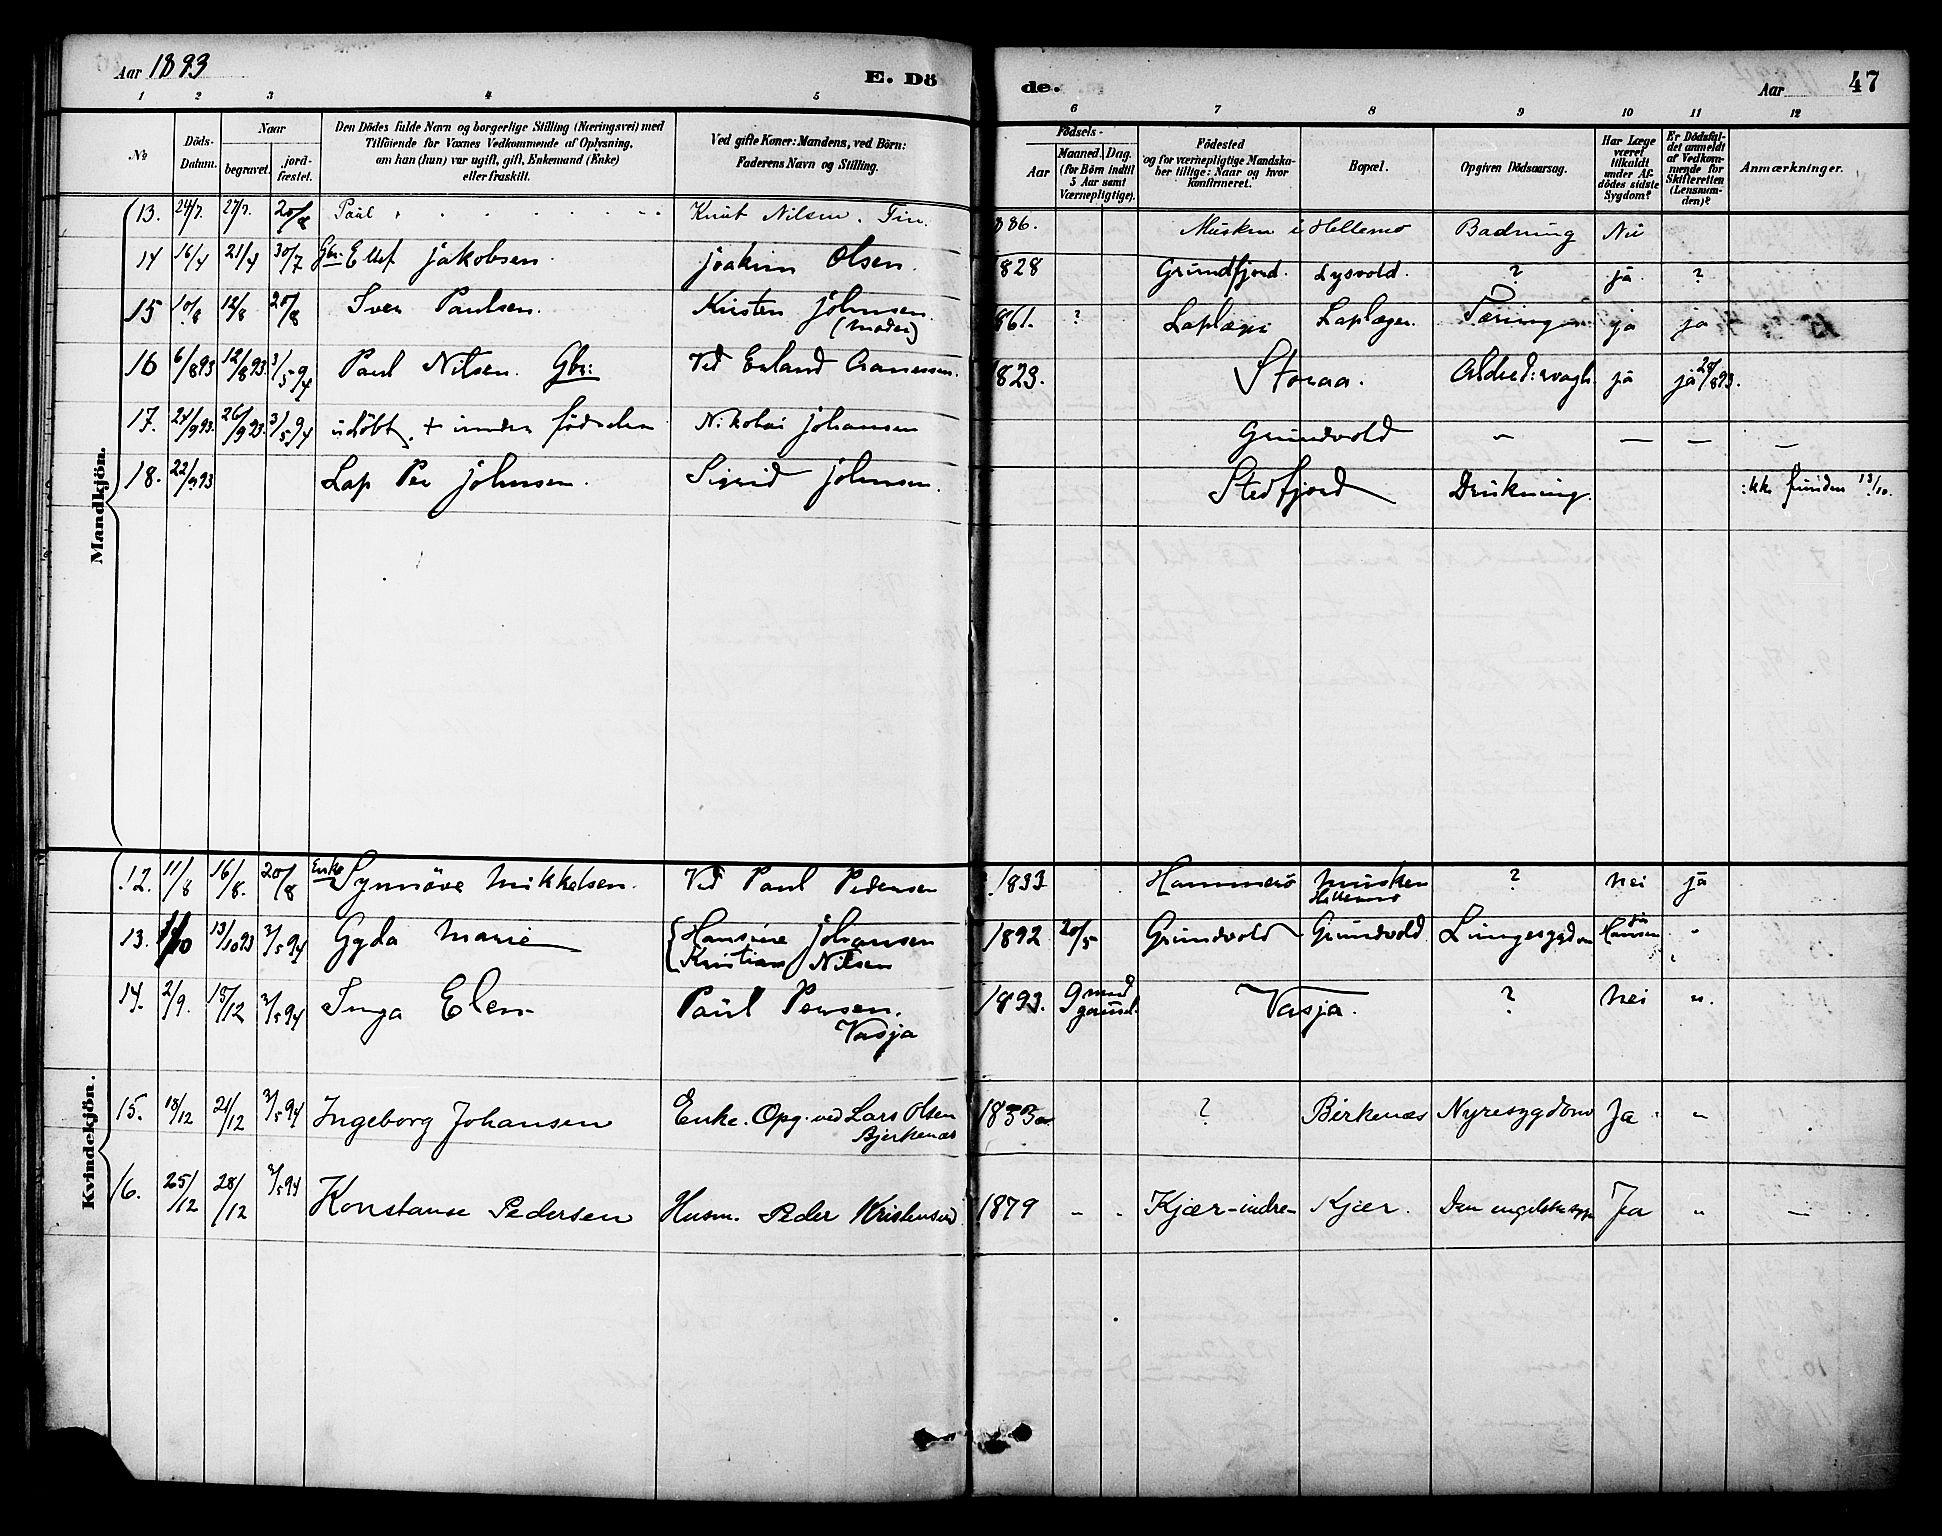 Aar 1893
E. Dö
de.
Aar
47
1 2 3 4 5 6 7 8 9 10 11 12
№
Döds-
Datum.
Naar
begravet.
jord-
fæstet.
Den Dödes fulde Navn og borgerlige Stilling (Næringsvei) med
Tilföiende for Voxnes Vedkommende af Oplysning,
om han (hun) var ugift, gift, Enkemand (Enke)
eller fraskilt.
Ved gifte Koner: Mandens, ved Börn:
Faderens Navn og Stilling.
Födsels-
Aar
Maaned. Dag.
(for Börn indtil
5 Aar samt
Værnepligtige).
Födested
og for værnepligtige Mandska-
ber tillige: Naar og hvor
konfirmeret.
Bopæl.
Opgiven Dödsaarsag.
Har Læge
været
tilkaldt
under Af-
dödes sidste
Sygdom?
Er Dödsfal-
det anmeldt
af Vedkom-
mende for
Skifteretten
(Lensman-
den)?
Anmærkninger.
Mandkjön.
13. 24/7. 27/7. 20/8 Paul Knut Nilsen. Fin. 886. Musken i Hellemo Badning Nei
14 16/4 21/4 30/7 Gbr. Ellef Jakobsen. Joakim Olsen. 828 Grundfjord. Lysvold. ? ja. ?
15 10/8 12/8 20/8 Sven Paulsen. Kirsten Johnsen.
(Moder)
861. ? Laplæger Laplæger. Tæring ja ja
16 6/8 93 12/8 93. 3/5 94 Paul Nilsen. Gbr: Ved Erland Aanensen. 1823. Storaa. Alderd: svagh. ja ja 28/8 93.
17. 24/9 93. 26/9 93. 3/5 94 udöbt, + under födselen Nikolai Johansen Grundvold – — — —
18. 22/9 93 Lap Per Johnsen. Sigrid Johnsen. Stedfjord Drukning. ikke funden 13/10.
Kvindekjön.
12. 11/8 16/8. 20/8 Enke Synnöve Mikkelsen. Ved Paul Pedersen 1833 Hammerö Musken
Hellemo
? nei ja
13. 13/10 93 3/5 94 Gyda Marie {Hansine Johansen
Kristian Nilsen
1892 20/5 Grundvold Grundvold Lungesygdom ja
Hansen
"
14. 2/9. 15/12 3/5 94 Inga Elen Paul Persen.
Vasja
1893. 9 mnd
gammel.
Vasja. ? nei ".
15. 18/12 21/12 3/5 94 Ingeborg Johansen Enke. Opg. ved Lars Olsen
Bjerkenæs
1833 ? Birkenæs Nyresygdom Ja "
16. 25/12 28/12 3/5 94 Konstanse Pedersen Husm. Peder Kristensen 1879 - - Kjær-indre- Kjær. Den engelske syge Ja " —